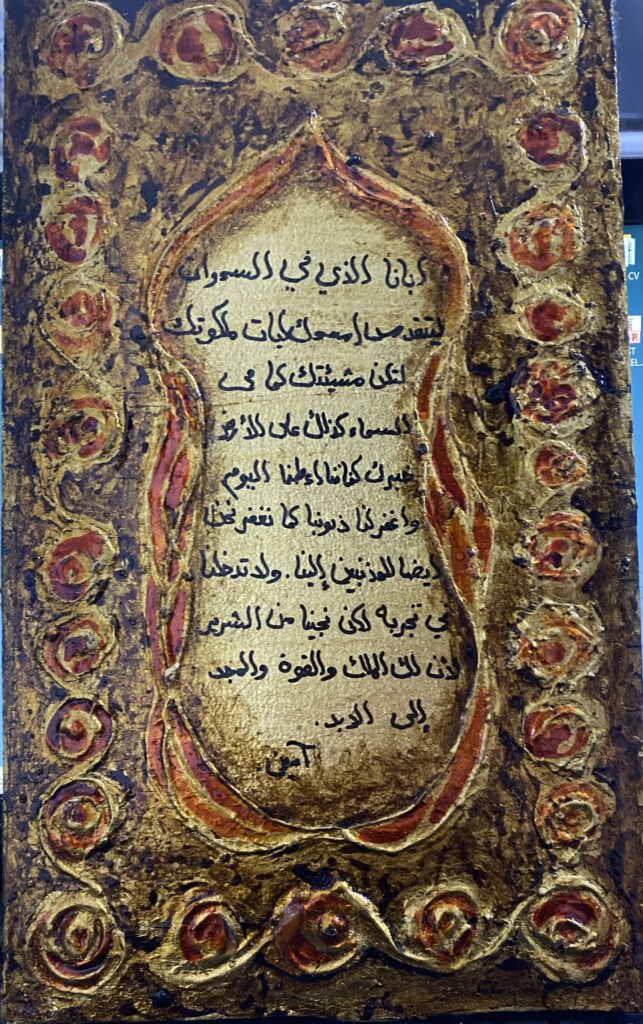 ابانا الذي في السموات
ليتقدس إسمك ليات ملكوتك
لتكن مشيئتك كما في
السماء كذلك على الأرض
خبزك كفاتنا اعطنا اليوم
واغفر لنا ذنوبنا كما نغفر نحن
ايضا للمذنبين إلينا. ولا تدخلنا
في تجربة لكن نجينا من الشرير
لأن لك الملك والقوة والمجد
إلى الابد.
آمين.
CV
ST
EL..